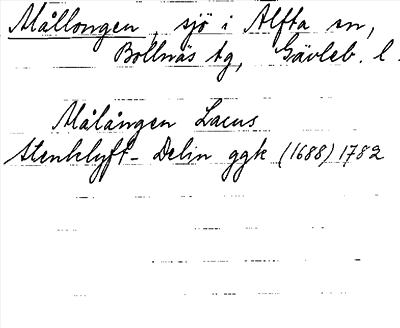 Mållongen, sjö i Alfta sn,
Bollnäs tg, Gävleb. l.
Målången Lacus
Stenklyft - Delin ggk (1688) 1782